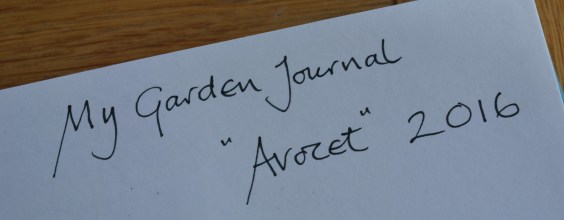 My Garden Journal
"Avocet" 2016